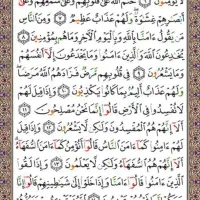 لَا يُؤْمِنُونَ ۝ خَتَمَ ٱللَّهُ عَلَىٰ قُلُوبِهِمْ وَعَلَىٰ سَمْعِهِمْ وَعَلَىٰٓ
أَبْصَٰرِهِمْ غِشَٰوَةٌ وَلَهُمْ عَذَابٌ عَظِيمٌ ۝ وَمِنَ ٱلنَّاسِ
مَن يَقُولُ ءَامَنَّا بِٱللَّهِ وَبِٱلْيَوْمِ ٱلْءَاخِرِ وَمَا هُم بِمُؤْمِنِينَ ۝
يُخَٰدِعُونَ ٱللَّهَ وَٱلَّذِينَ ءَامَنُوا۟ وَمَا يَخْدَعُونَ إِلَّآ أَنفُسَهُمْ
وَمَا يَشْعُرُونَ ۝ فِى قُلُوبِهِم مَّرَضٌ فَزَادَهُمُ ٱللَّهُ مَرَضًا
وَلَهُمْ عَذَابٌ أَلِيمٌۢ بِمَا كَانُوا۟ يَكْذِبُونَ ۝ وَإِذَا قِيلَ لَهُمْ
لَا تُفْسِدُوا۟ فِى ٱلْأَرْضِ قَالُوٓا۟ إِنَّمَا نَحْنُ مُصْلِحُونَ ۝
أَلَآ إِنَّهُمْ هُمُ ٱلْمُفْسِدُونَ وَلَٰكِن لَّا يَشْعُرُونَ ۝ وَإِذَا قِيلَ
لَهُمْ ءَامِنُوا۟ كَمَآ ءَامَنَ ٱلنَّاسُ قَالُوٓا۟ أَنُؤْمِنُ كَمَآ ءَامَنَ ٱلسُّفَهَآءُ
أَلَآ إِنَّهُمْ هُمُ ٱلسُّفَهَآءُ وَلَٰكِن لَّا يَعْلَمُونَ ۝ وَإِذَا لَقُوا۟
ٱلَّذِينَ ءَامَنُوا۟ قَالُوٓا۟ ءَامَنَّا وَإِذَا خَلَوْا۟ إِلَىٰ شَيَٰطِينِهِمْ قَالُوٓا۟